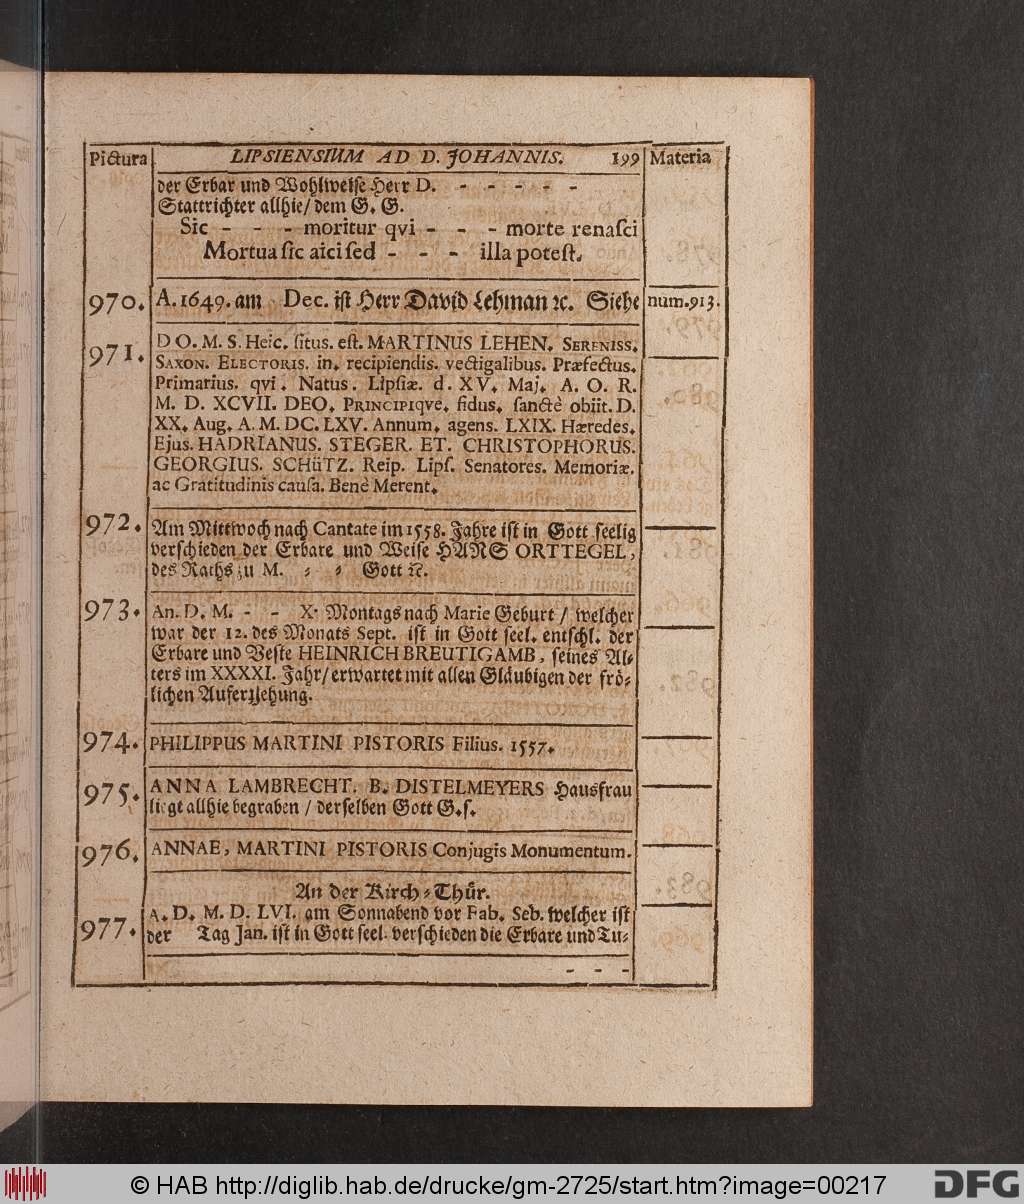 Pictura LIPSIENSIUM AD D. JOHANNIS. 199 Materia
der Erbar und Wohlweiſe Herr D. - - - - -
Stattrichter allhie/ dem G. G.
Sic - - - moritur qvi - - - morte renaſci
Mortua ſic aici ſed - - - illa poteſt.
970. A. 1649. am Dec. iſt Herr David Lehman ꝛc. Siehe num. 913.
971. D O. M. S. Heic. ſitus. eſt. MARTINUS LEHEN. SERENISS.
SAXON. ELECTORIS. in. recipiendis. vectigalibus. Præfectus.
Primarius. qvi. Natus. Lipſiæ. d. XV. Maj. A. O. R.
M. D. XCVII. DEO. PRINCIPIqve. fidus. ſanctè obiit. D.
XX. Aug. A. M. DC. LXV. Annum. agens. LXIX. Hæredes.
Ejus. HADRIANUS. STEGER. ET. CHRISTOPHORUS.
GEORGIUS. SCHüTZ. Reip. Lipſ. Senatores. Memoriæ.
ac Gratitudinis cauſa. Benè Merent.
972. Am Mittwoch nach Cantate im 1558. Jahre iſt in Gott ſeelig
verſchieden der Erbare und Weiſe HANS ORTTEGEL,
des Raths zu M. - - Gott ꝛc.
973. An. D. M. - - X. Montags nach Marie Geburt / welcher
war der 12. des Monats Sept. iſt in Gott ſeel. entſchl. der
Erbare und Veſte HEINRICH BREUTIGAMB, ſeines Al-
ters im XXXXI. Jahr/ erwartet mit allen Gläubigen der frö-
lichen Auferzſehung.
974. PHILIPPUS MARTINI PISTORIS Filius. 1557.
975. ANNA LAMBRECHT. B. DISTELMEYERS Hausfrau
liegt allhie begraben / derſelben Gott G. ſ.
976. ANNAE, MARTINI PISTORIS Conjugis Monumentum.
An der Kirch-Thür.
977. A. D. M. D. LVI. am Sonnabend vor Fab. Seb. welcher iſt
der Tag Jan. iſt in Gott ſeel. verſchieden die Erbare und Tu-
- - -
© HAB http://diglib.hab.de/drucke/gm-2725/start.htm?image=00217
DFG